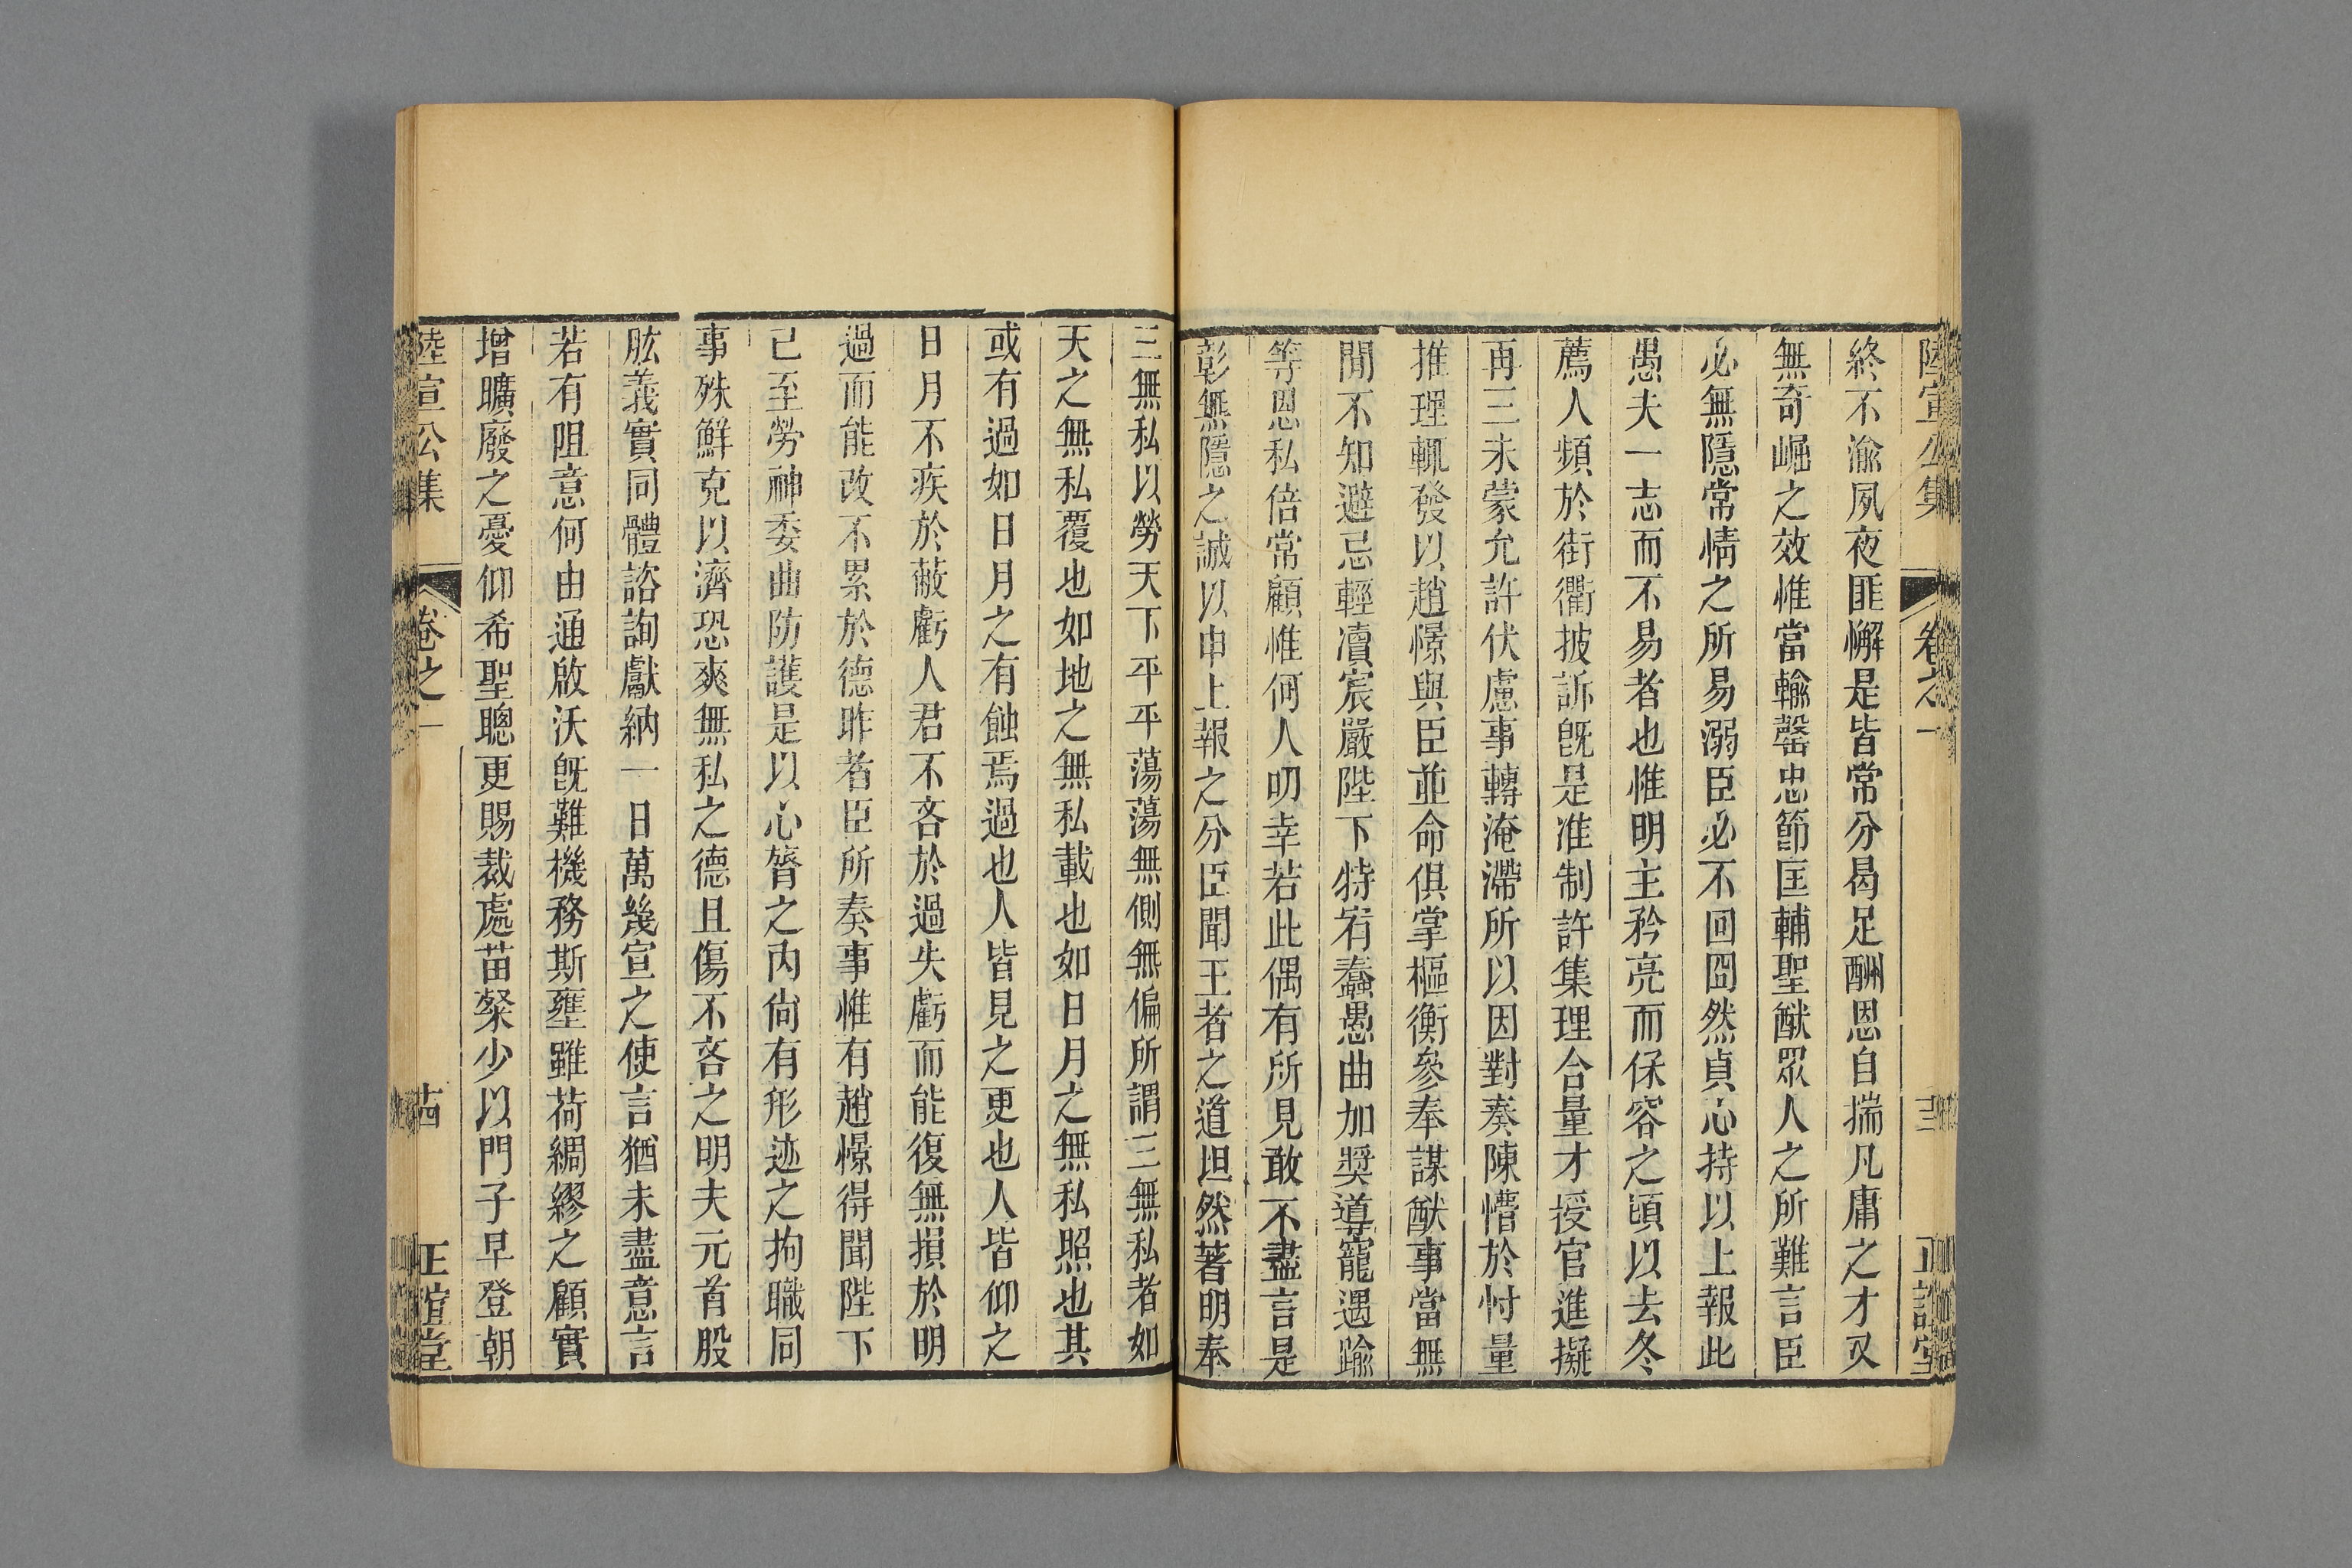 陸宣公集 卷之一 十三 正誼堂
終不渝夙夜匪懈是皆常分曷足酬恩自揣凡庸之才又
無奇崛之效惟當輸罄忠節匡輔聖猷眾人之所難言臣
必無隱常情之所易溺臣必不回囧然貞心持以上報此
愚夫一志而不易者也惟明主矜亮而保容之頃以去冬
薦人頻於街衢披訴旣是准制許集理合量才授官進擬
再三未蒙允許伏慮事轉淹滯所以因對奏陳懵於忖量
推理輒發以趙憬與臣並命俱掌樞衡參奉謀猷事當無
閒不知避忌輕凟宸嚴陛下特宥蠢愚曲加奬導寵遇踰
等恩私倍常顧惟何人叨幸若此偶有所見敢不盡言是
彰無隱之誠以申上報之分臣聞王者之道坦然著明奉
三無私以勞天下平平蕩蕩無側無偏所謂三無私者如
天之無私覆也如地之無私載也如日月之無私照也其
或有過如日月之有蝕焉過也人皆見之更也人皆仰之
日月不疾於蔽虧人君不吝於過失虧而能復無損於明
過而能改不累於德昨者臣所奏事惟有趙憬得聞陛下
己至勞神委曲防護是以心膂之內尙有形迹之拘職同
事殊鮮克以濟恐爽無私之德且傷不吝之明夫元首股
肱義實同體諮詢獻納一日萬幾宣之使言猶未盡意言
若有阻意何由通啟沃旣難機務斯壅雖荷綢繆之顧實
增曠廢之憂仰希聖聰更賜裁處苗粲少以門子早登朝
陸宣公集 卷之一 十四 正誼堂